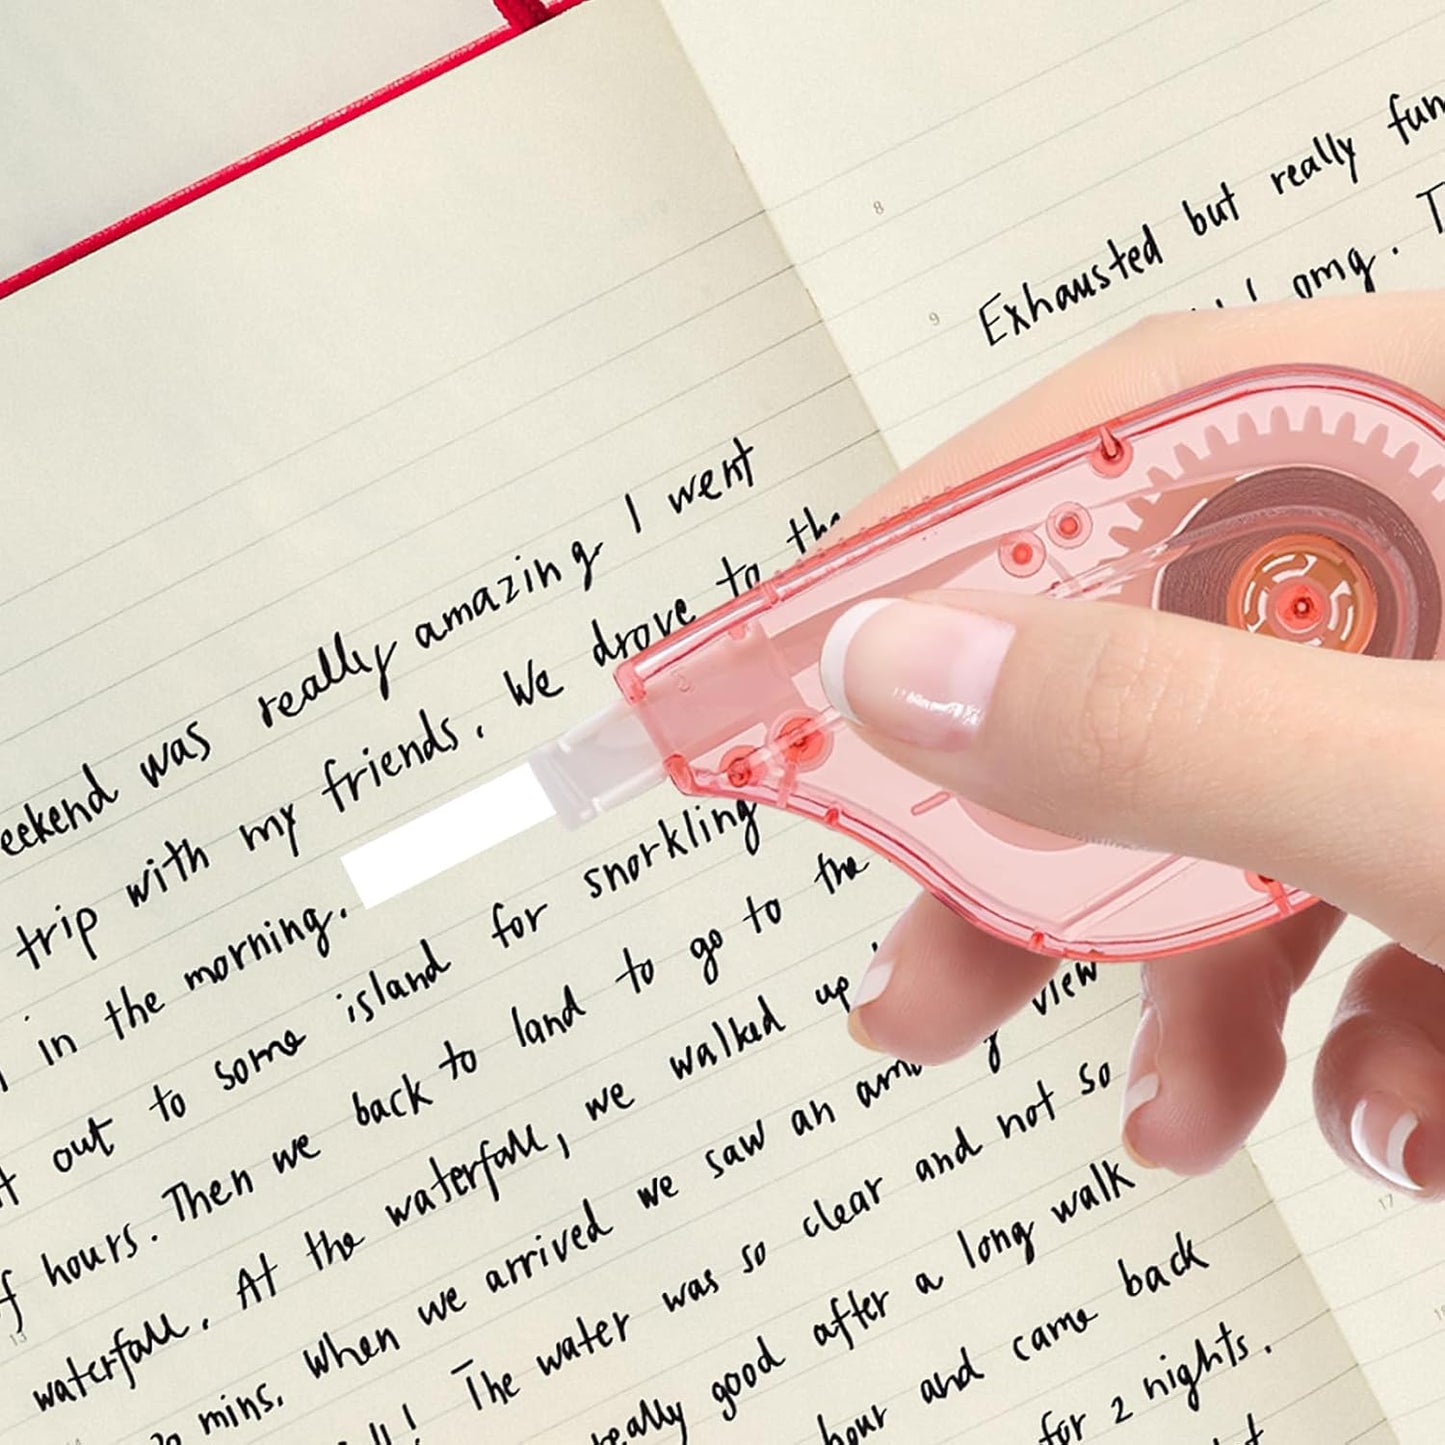 weekend was really amazing I went
trip with my friends. We drove to the
in the morning.
out to some island for snorkling
hours. Then we back to land to go to the
waterfall. At the waterfall, we walked up
mins. When we arrived we saw an view
The water was so clear and not so
really good after a long walk
hour and came back
for 2 nights.
8
9
Exhausted but really fun
omg.
13
17